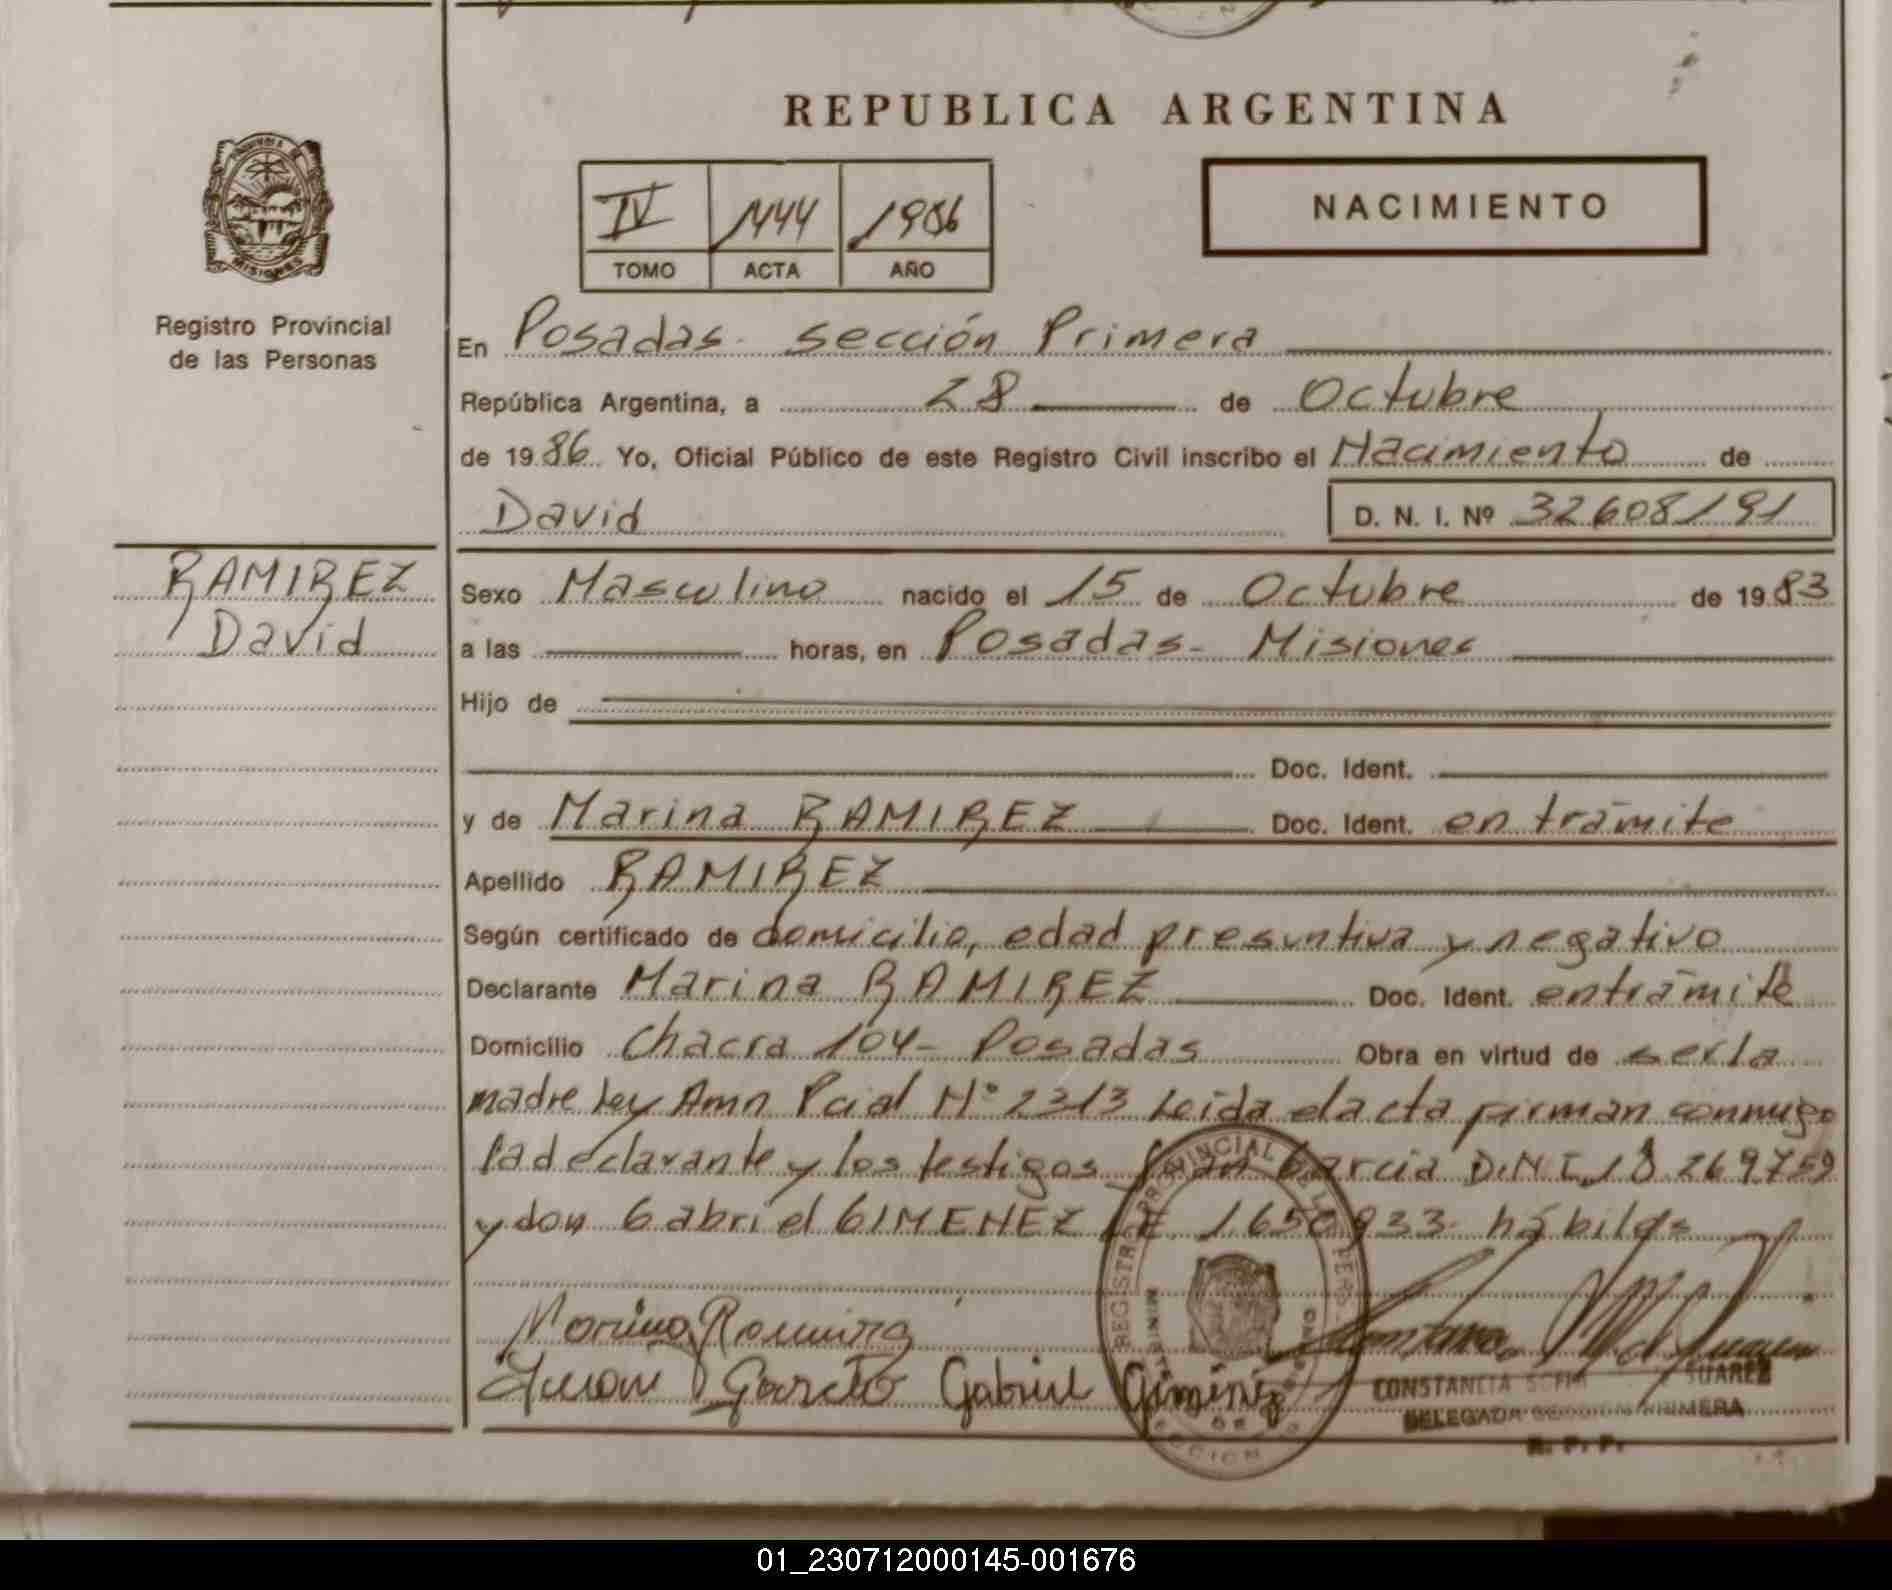 REPUBLICA ARGENTINA
MISIONES
Registro Provincial
de las Personas
IV 1444 1986
TOMO ACTA AÑO
NACIMIENTO
En Posadas - sección Primera
República Argentina, a 28 de Octubre
de 1986 Yo, Oficial Público de este Registro Civil inscribo el Nacimiento de
David D. N. I. Nº 32608191
RAMIREZ
David
Sexo Masculino nacido el 15 de Octubre de 1983
a las horas, en Posadas - Misiones
Hijo de
Doc. Ident.
y de Marina RAMIREZ Doc. Ident. en trámite
Apellido RAMIREZ
Según certificado de domicilio, edad presuntiva y negativo
Declarante Marina RAMIREZ Doc. Ident. en trámite
Domicilio Chacra 104 - Posadas Obra en virtud de ser la
madre ley Amn Pcial Nº 2313 Leida el acta firman conmigo
la declarante y los testigos Juan Garcia D.N.I. 18.269759
y don Gabriel GIMENEZ LE 1.650933 - hábiles
Marina Ramirez
Juan Garcia Gabriel Giminez
CONSTANCIA SUAREZ
DELEGADA SECCION PRIMERA
R. P. P.
01_230712000145-001676